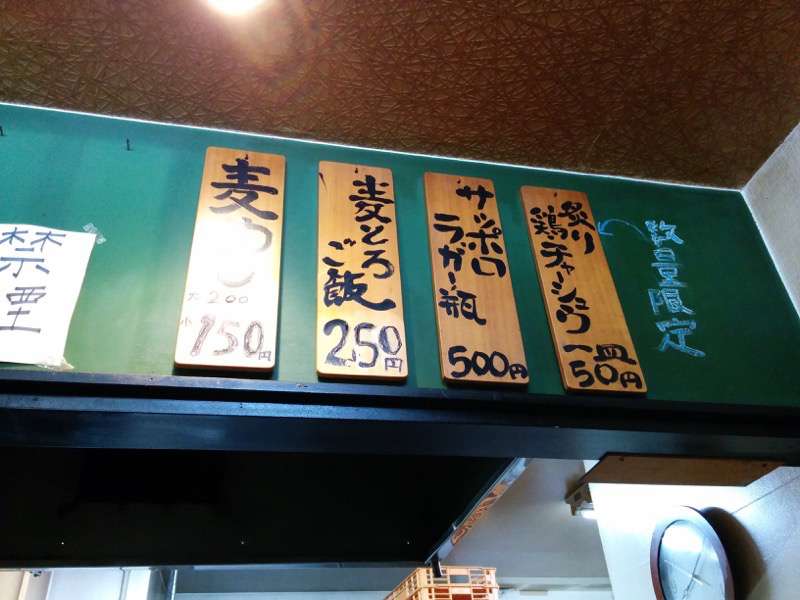 禁煙
麦めし
大200
小150円
麦とろ
ご飯
250円
サッポロ
ラガー瓶
500円
炙り
鶏チャーシュウ
一皿
50円
数量限定